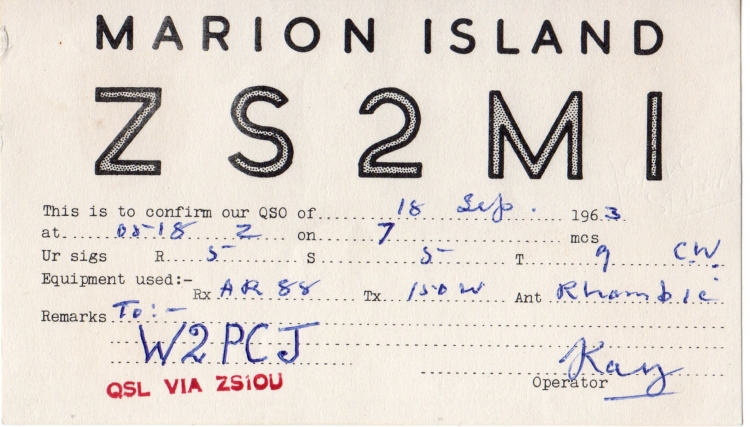 MARION ISLAND
ZS2MI
This is to confirm our QSO of 18 Sep. 1963
at 0518 Z on 7 mcs
Ur sigs R 5 S 5 T 9 CW
Equipment used:- Rx AR 88 Tx 150 W Ant Rhombic
Remarks To:-
W2PCJ
Kay
Operator
QSL VIA ZS1OU